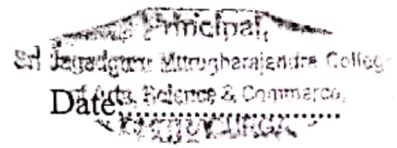 Principal,
Sri Jagadguru Murugharajendra College
of Arts, Science & Commerce,
Date..................